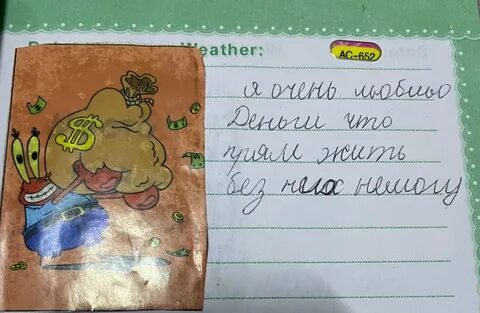 Weather:
AC-652
$
я очень люблю
Деньги что
прям жить
без них немогу